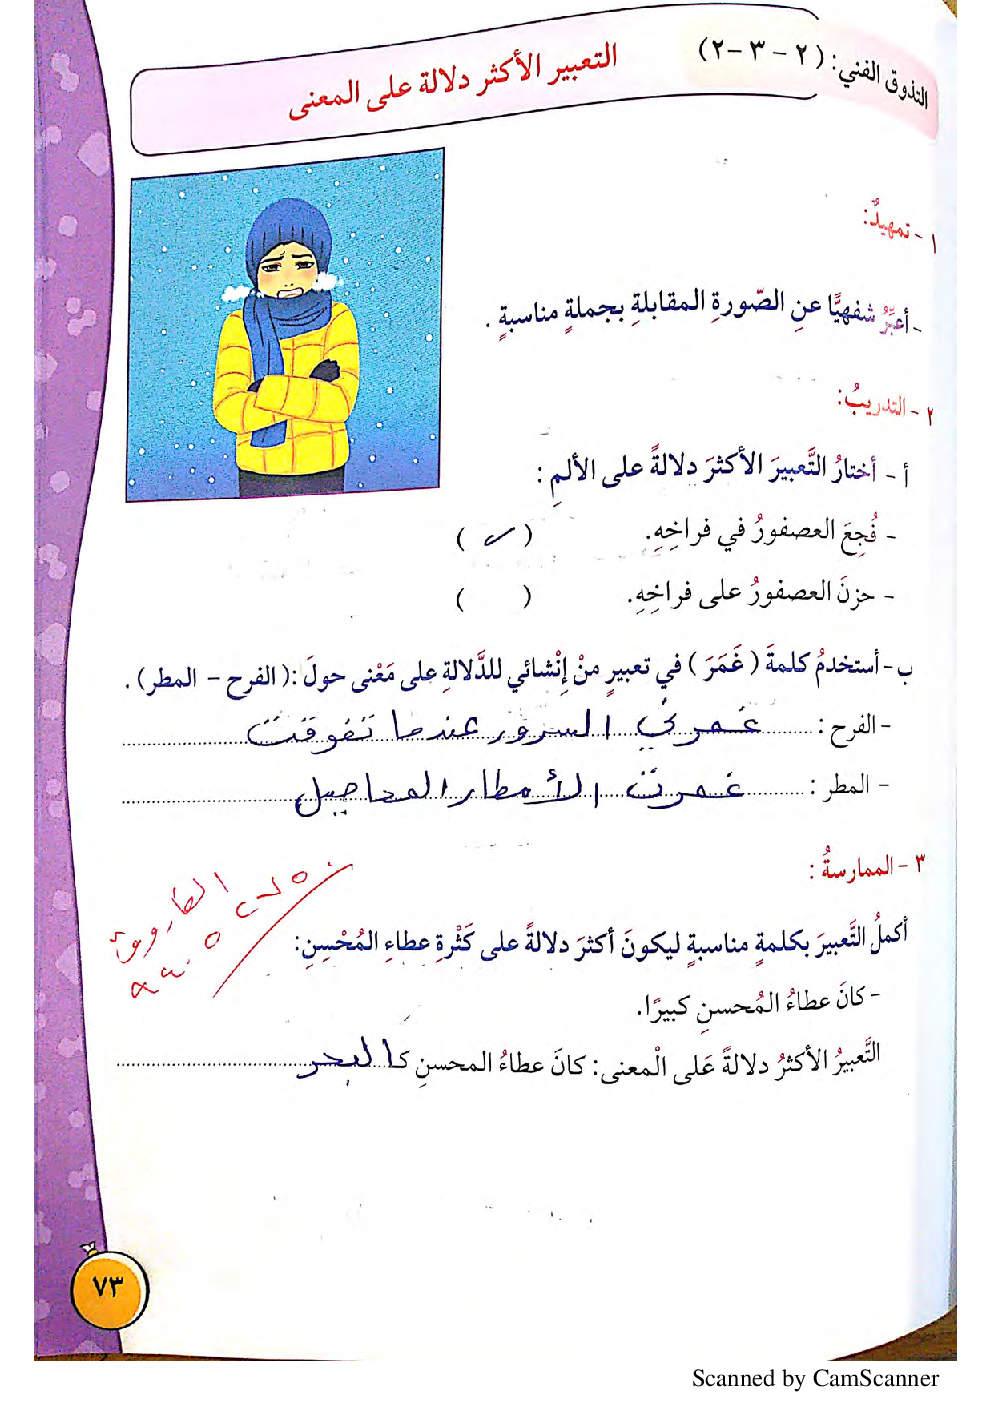 التذوق الفني: (٢ - ٣ - ٢)
التعبير الأكثر دلالة على المعنى
١ - تمهيدٌ:
- أعبِّرُ شفهيًّا عنِ الصّورةِ المقابلةِ بجملةٍ مناسبةٍ .
٢ - التدريبُ:
أ - أختارُ التَّعبيرَ الأكثرَ دلالةً على الألمِ :
- فُجِعَ العصفورُ في فراخِهِ. ( ✓ )
- حزنَ العصفورُ على فراخِهِ. ( )
ب - أستخدمُ كلمةَ ( غَمَرَ ) في تعبيرٍ منْ إنْشائي للدَّلالةِ على مَعْنى حولَ : ( الفرح - المطر ) .
- الفرح : غمرني السرور عندما تفوقت
- المطر : غمرت الأمطار المحاصيل
٣ - الممارسةُ :
أكملُ التَّعبيرَ بكلمةٍ مناسبةٍ ليكونَ أكثرَ دلالةً على كَثْرةِ عطاءِ المُحْسنِ:
- كانَ عطاءُ المُحسنِ كبيرًا.
التَّعبيرُ الأكثرُ دلالةً عَلى الْمعنى: كانَ عطاءُ المحسنِ كَالبحر
٧٣
Scanned by CamScanner